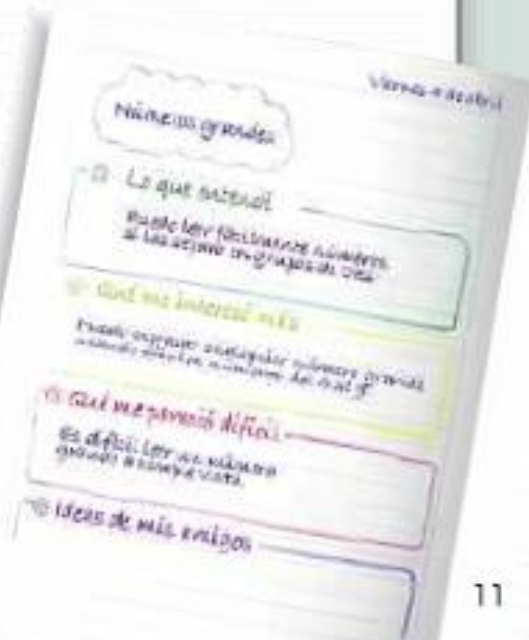 Viernes 9 de abril
Números grandes
Lo que entendí
Puedo leer fácilmente números
si los separo en grupos de
Qué me interesó más
Puedo expresar cualquier número grande
usando números del 0 al 9
Qué me pareció difícil
Es difícil leer un número
grande a simple vista.
Ideas de mis amigos
11